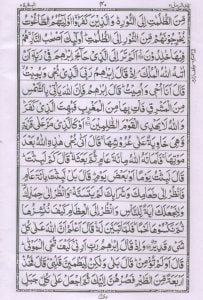 مِّنَ الظُّلُمٰتِ اِلَى النُّوْرِ وَالَّذِيْنَ كَفَرُوْۤا اَوْلِيٰٓـُٔهُمُ الطَّاغُوْتُ
يُخْرِجُوْنَهُمْ مِّنَ النُّوْرِ اِلَى الظُّلُمٰتِ اُولٰٓئِكَ اَصْحٰبُ النَّارِ هُمْ
فِيْهَا خٰلِدُوْنَ اَلَمْ تَرَ اِلَى الَّذِيْ حَآجَّ اِبْرٰهٖمَ فِيْ رَبِّهٖٓ اَنْ
اٰتٰىهُ اللّٰهُ الْمُلْكَ اِذْ قَالَ اِبْرٰهٖمُ رَبِّيَ الَّذِيْ يُحْيٖ وَيُمِيْتُ
قَالَ اَنَا اُحْيٖ وَاُمِيْتُ قَالَ اِبْرٰهٖمُ فَاِنَّ اللّٰهَ يَاْتِيْ بِالشَّمْسِ
مِنَ الْمَشْرِقِ فَاْتِ بِهَا مِنَ الْمَغْرِبِ فَبُهِتَ الَّذِيْ كَفَرَ
وَاللّٰهُ لَا يَهْدِي الْقَوْمَ الظّٰلِمِيْنَ اَوْ كَالَّذِيْ مَرَّ عَلٰى قَرْيَةٍ
وَّهِيَ خَاوِيَةٌ عَلٰى عُرُوْشِهَا قَالَ اَنّٰى يُحْيٖ هٰذِهِ اللّٰهُ بَعْدَ
مَوْتِهَا فَاَمَاتَهُ اللّٰهُ مِائَةَ عَامٍ ثُمَّ بَعَثَهٗ قَالَ كَمْ لَبِثْتَ
قَالَ لَبِثْتُ يَوْمًا اَوْ بَعْضَ يَوْمٍ قَالَ بَلْ لَّبِثْتَ مِائَةَ عَامٍ
فَانْظُرْ اِلٰى طَعَامِكَ وَشَرَابِكَ لَمْ يَتَسَنَّهْ وَانْظُرْ اِلٰى حِمَارِكَ
وَلِنَجْعَلَكَ اٰيَةً لِّلنَّاسِ وَانْظُرْ اِلَى الْعِظَامِ كَيْفَ نُنْشِزُهَا
ثُمَّ نَكْسُوْهَا لَحْمًا فَلَمَّا تَبَيَّنَ لَهٗ قَالَ اَعْلَمُ اَنَّ اللّٰهَ عَلٰى كُلِّ
شَيْءٍ قَدِيْرٌ وَاِذْ قَالَ اِبْرٰهٖمُ رَبِّ اَرِنِيْ كَيْفَ تُحْيِ الْمَوْتٰى
قَالَ اَوَلَمْ تُؤْمِنْ قَالَ بَلٰى وَلٰكِنْ لِّيَطْمَئِنَّ قَلْبِيْ قَالَ فَخُذْ
اَرْبَعَةً مِّنَ الطَّيْرِ فَصُرْهُنَّ اِلَيْكَ ثُمَّ اجْعَلْ عَلٰى كُلِّ جَبَلٍ